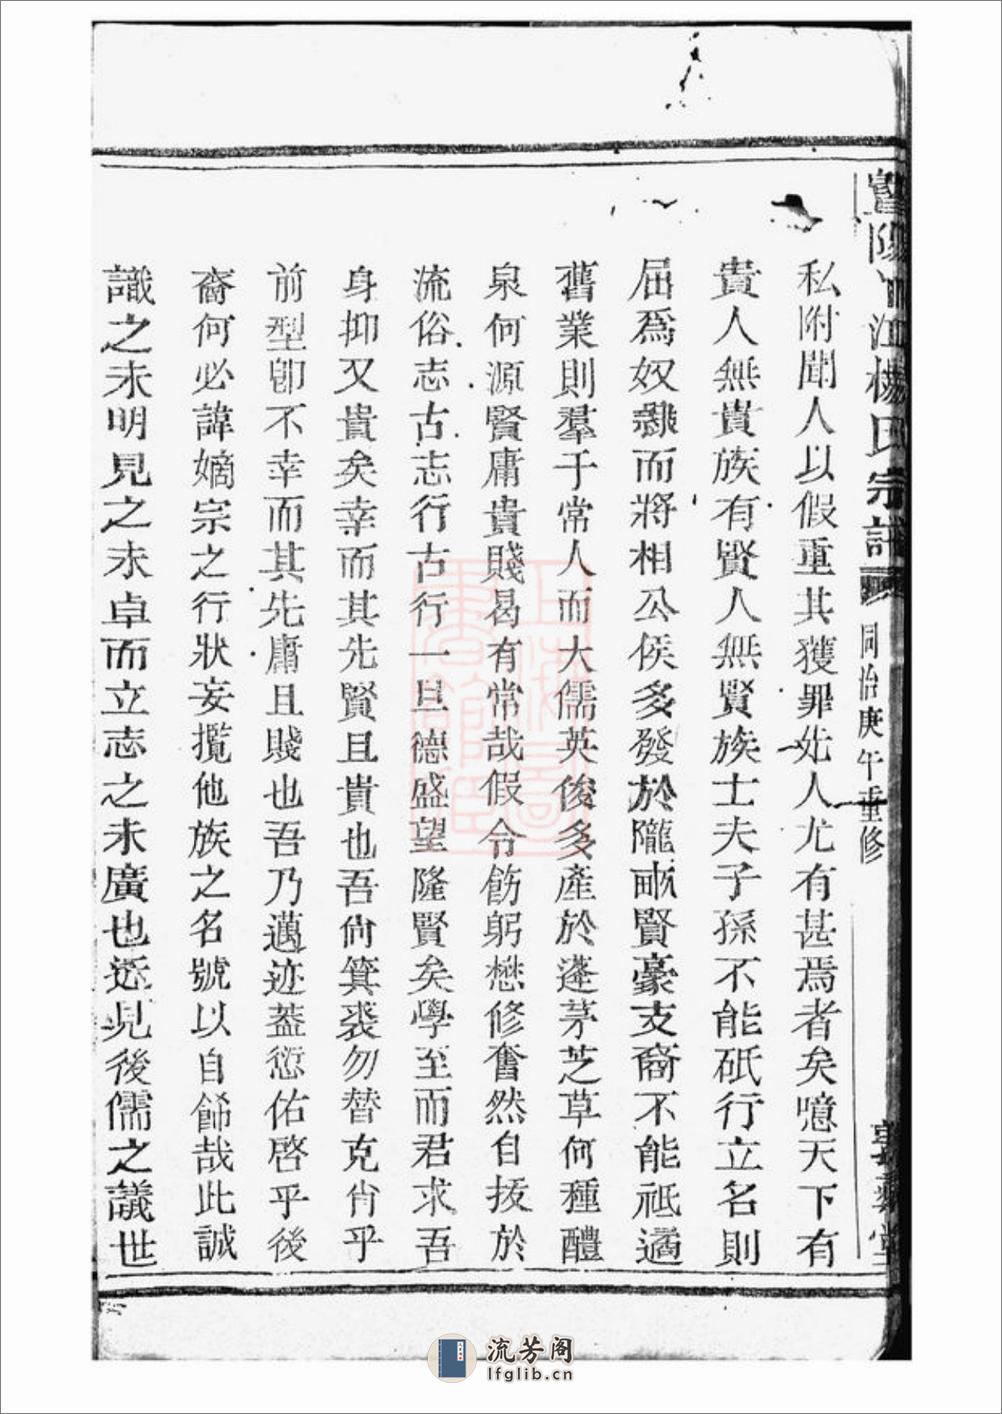 暨陽 江楊氏宗譜
同治庚午重修
堂
私附聞人以假重其獲罪先人尤有甚焉者矣噫天下有
貴人無貴族有賢人無賢族士夫子孫不能砥行立名則
屈爲奴隸而將相公侯多發於隴畝賢豪支裔不能祗遹
舊業則羣于常人而大儒英俊多產於蓬茅芝草何種醴
泉何源賢庸貴賤曷有常哉假令飭躬懋修奮然自拔於
流俗志古志行古行一旦德盛望隆賢矣學至而君求吾
身抑又貴矣幸而其先賢且貴也吾尙箕裘勿替克肖乎
前型卽不幸而其先庸且賤也吾乃邁迹葢愆佑啓乎後
裔何必諱嫡宗之行狀妄攬他族之名號以自飾哉此誠
識之未明見之未卓而立志之未廣也迹見後儒之議世
流芳阁
lfglib.cn